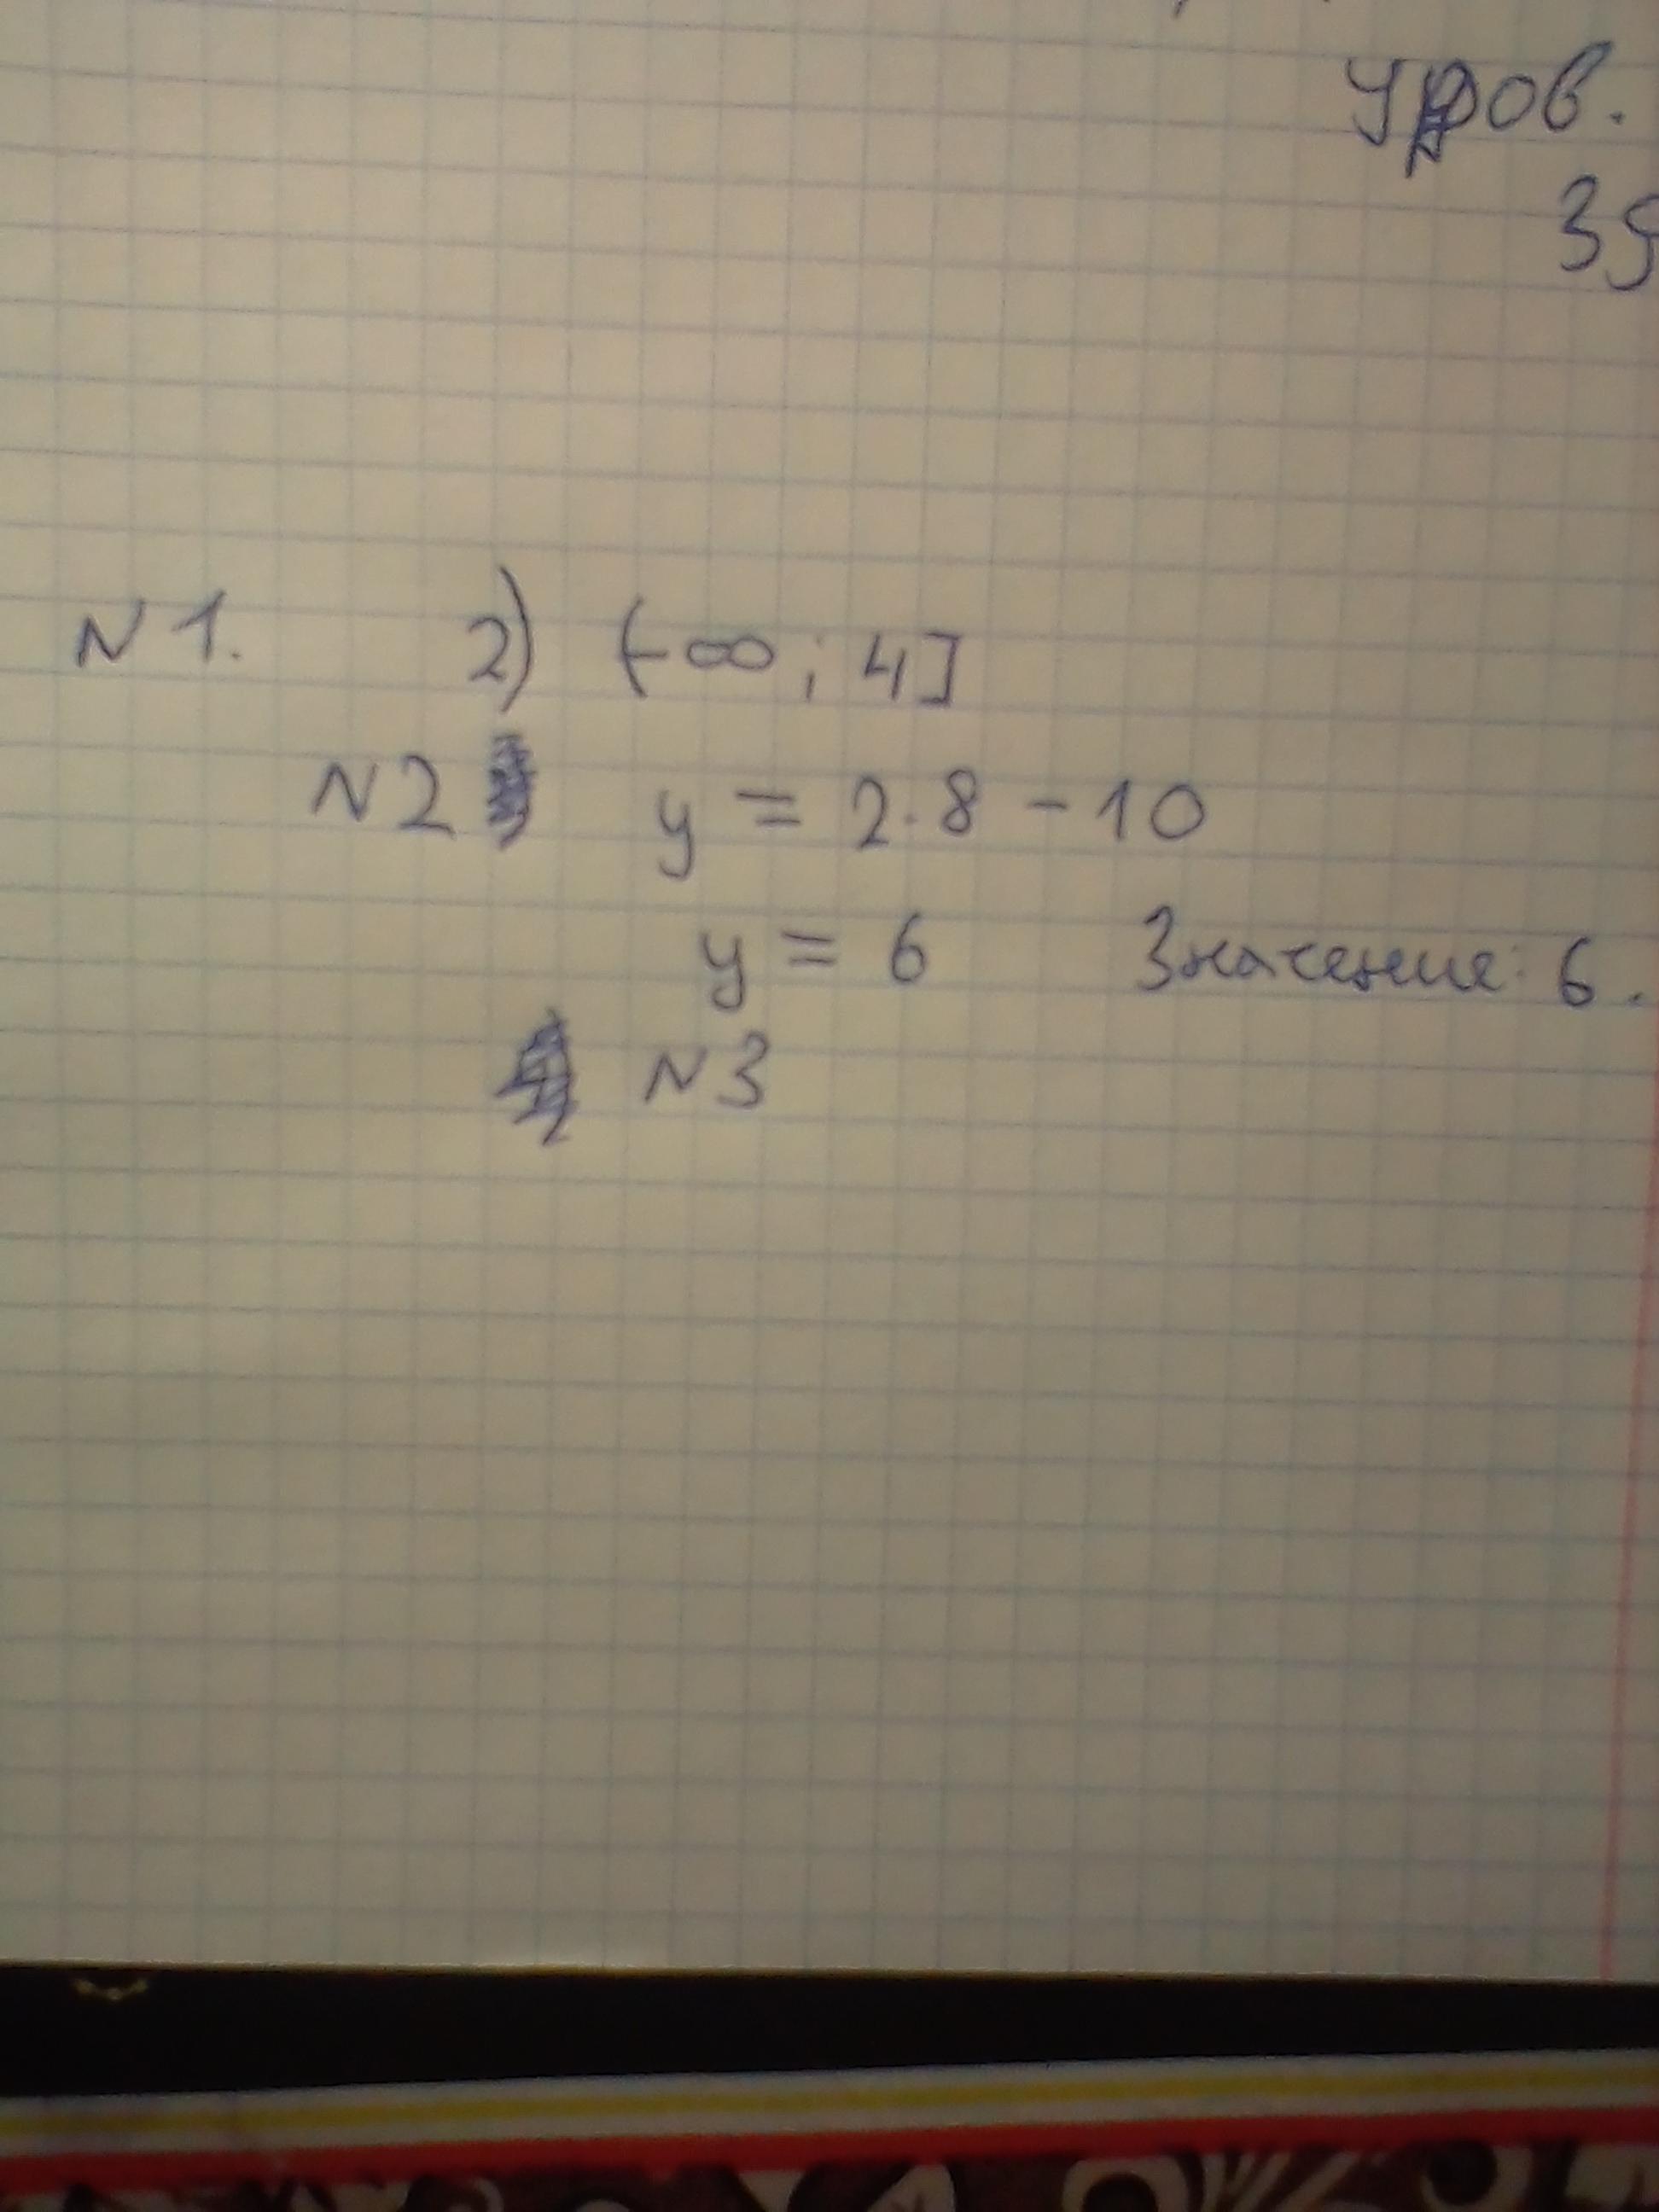 уров.
N 1. 2) (-∞; 4]
N2 y = 2·8 - 10
y = 6 Значение: 6.
N3